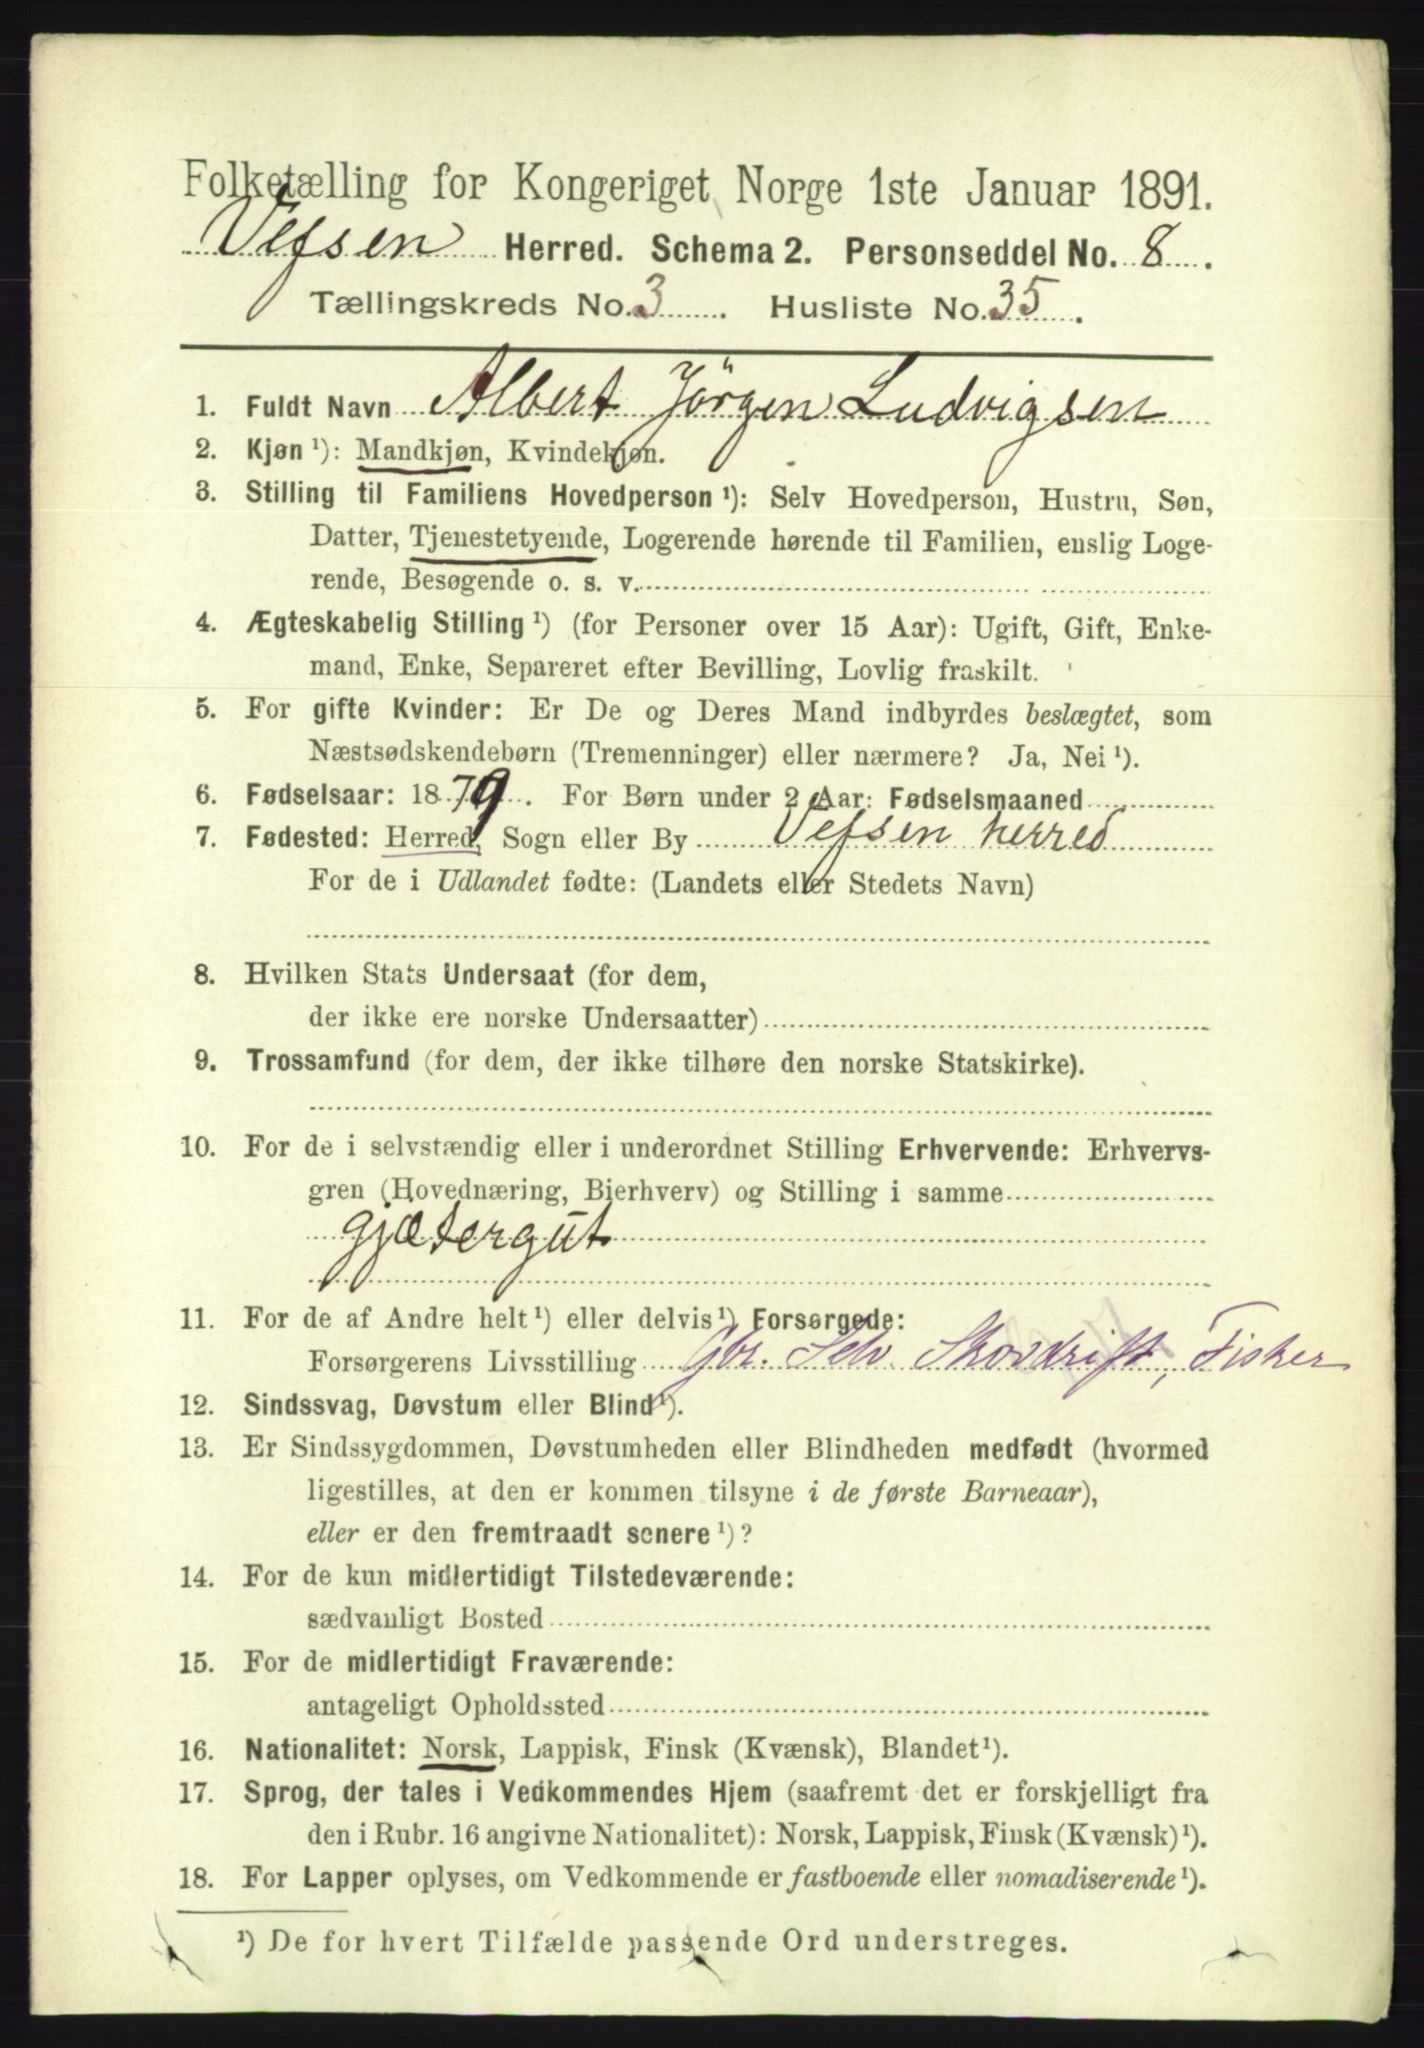 Folketælling for Kongeriget Norge 1ste Januar 1891.
Vefsen Herred. Schema 2. Personseddel No. 8.
Tællingskreds No. 3. Husliste No. 35.
1. Fuldt Navn Albert Jörgen Ludvigsen
2. Kjøn ¹): Mandkjøn, Kvindekjøn.
3. Stilling til Familiens Hovedperson ¹): Selv Hovedperson, Hustru, Søn,
Datter, Tjenestetyende, Logerende hørende til Familien, enslig Loge-
rende, Besøgende o. s. v.
4. Ægteskabelig Stilling ¹) (for Personer over 15 Aar): Ugift, Gift, Enke-
mand, Enke, Separeret efter Bevilling, Lovlig fraskilt.
5. For gifte Kvinder: Er De og Deres Mand indbyrdes beslægtet, som
Næstsødskendebørn (Tremenninger) eller nærmere? Ja, Nei ¹).
6. Fødselsaar: 1879. For Børn under 2 Aar: Fødselsmaaned
7. Fødested: Herred, Sogn eller By Vefsen herred
For de i Udlandet fødte: (Landets eller Stedets Navn)
8. Hvilken Stats Undersaat (for dem,
der ikke ere norske Undersaatter)
9. Trossamfund (for dem, der ikke tilhøre den norske Statskirke).
10. For de i selvstændig eller i underordnet Stilling Erhvervende: Erhvervs-
gren (Hovednæring, Bierhverv) og Stilling i samme
gjætergut
11. For de af Andre helt ¹) eller delvis ¹) Forsørgede:
Forsørgerens Livsstilling Gbr. Selv. Skovdrift, Fisker
12. Sindssvag, Døvstum eller Blind ¹).
13. Er Sindssygdommen, Døvstumheden eller Blindheden medfødt (hvormed
ligestilles, at den er kommen tilsyne i de første Barneaar),
eller er den fremtraadt senere ¹)?
14. For de kun midlertidigt Tilstedeværende:
sædvanligt Bosted
15. For de midlertidigt Fraværende:
antageligt Opholdssted
16. Nationalitet: Norsk, Lappisk, Finsk (Kvænsk), Blandet ¹).
17. Sprog, der tales i Vedkommendes Hjem (saafremt det er forskjelligt fra
den i Rubr. 16 angivne Nationalitet): Norsk, Lappisk, Finsk (Kvænsk) ¹).
18. For Lapper oplyses, om Vedkommende er fastboende eller nomadiserende ¹).
¹) De for hvert Tilfælde passende Ord understreges.